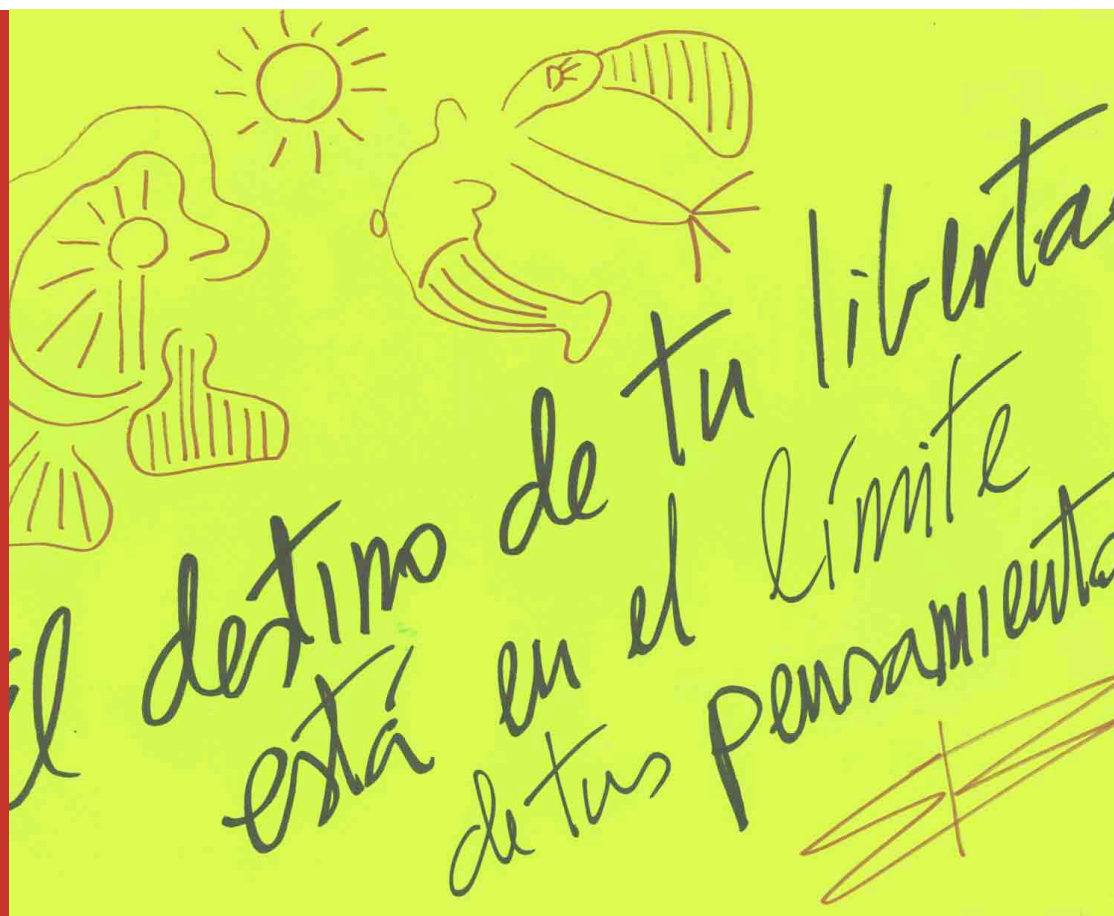 El destino de tu liberta
está en el límite
de tus pensamiento